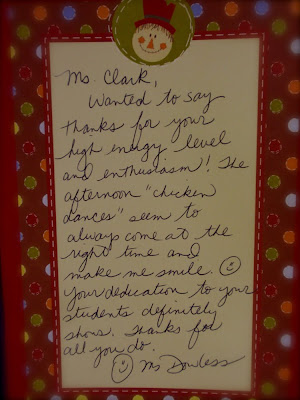 Ms. Clark,
Wanted to say
thanks for your
high energy level
and enthusiasm! The
afternoon "chicken
dances" seem to
always come at the
right time and
make me smile. ☺
Your dedication to your
students definitely
shows. Thanks for
all you do.
☺ Ms Dowless